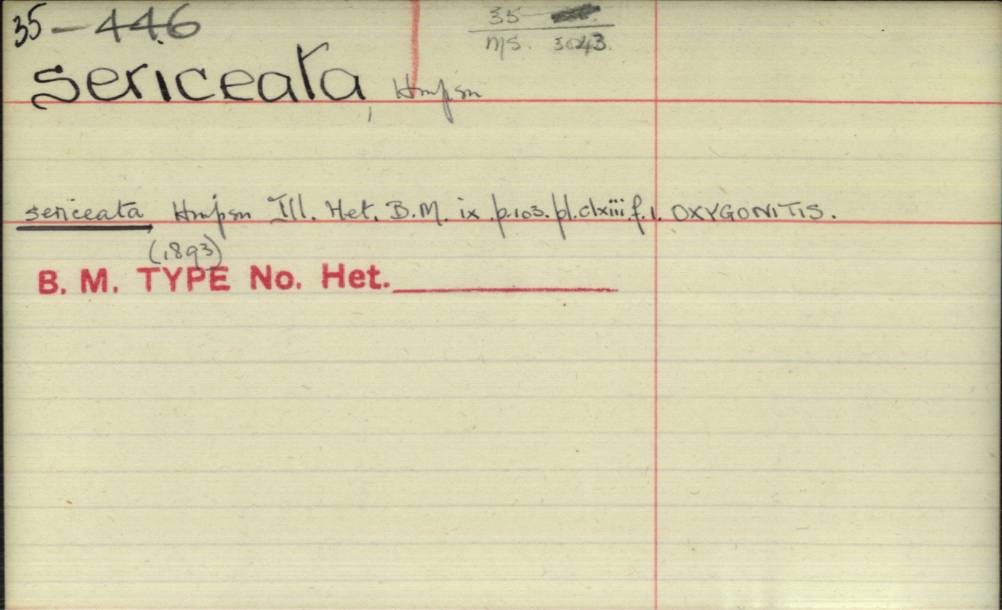 35-446
35
MS. 3043.
sericeata, Hmpsn
sericeata Hmpsn Ill. Het. B.M. ix. p.103. pl.clxiii.f.1. OXYGONITIS.
(1893)
B. M. TYPE No. Het.